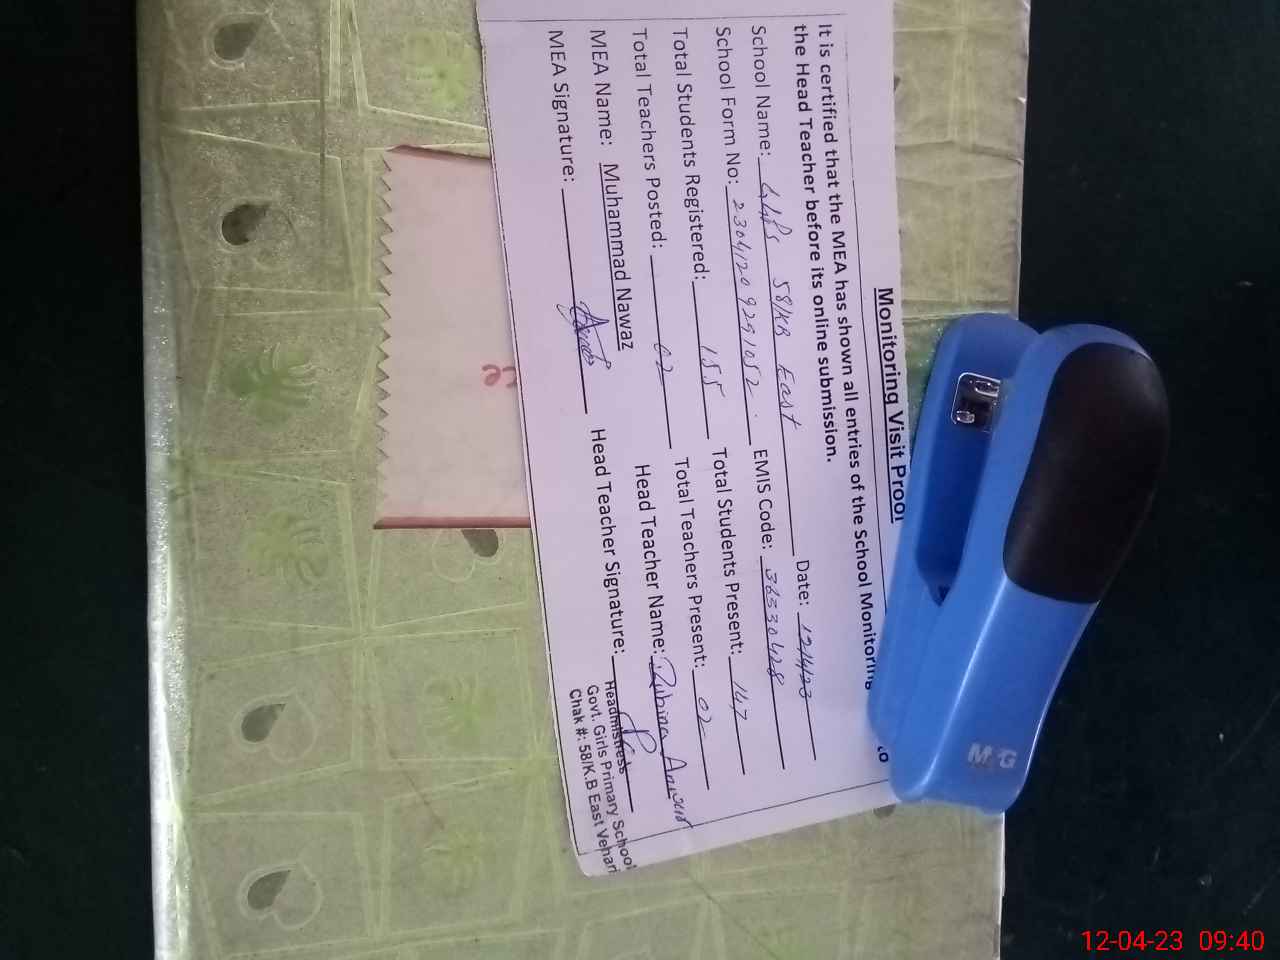 Monitoring Visit Proof
It is certified that the MEA has shown all entries of the School Monitoring to
the Head Teacher before its online submission.
School Name: GGPS 58/KB East Date: 12/4/23
School Form No: 23041209291052. EMIS Code: 36330428
Total Students Registered: 155 Total Students Present: 147
Total Teachers Posted: 02 Total Teachers Present: 02
MEA Name: Muhammad Nawaz Head Teacher Name: Rubina
MEA Signature: Head Teacher Signature:
Headmistress
Govt. Girls Primary School
Chak #: 58/K.B East Vehari
M&G
ce
12-04-23 09:40